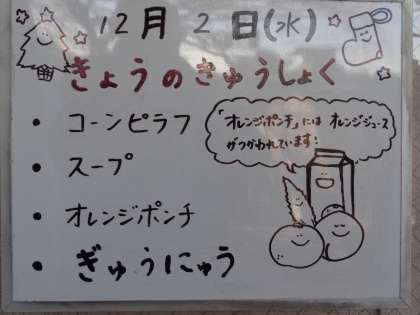 12月 2日(水)
きょうのきゅうしょく
• コーンピラフ
• スープ
• オレンジポンチ
• ぎゅうにゅう
「オレンジポンチ」には オレンジジュース
がつかわれています!